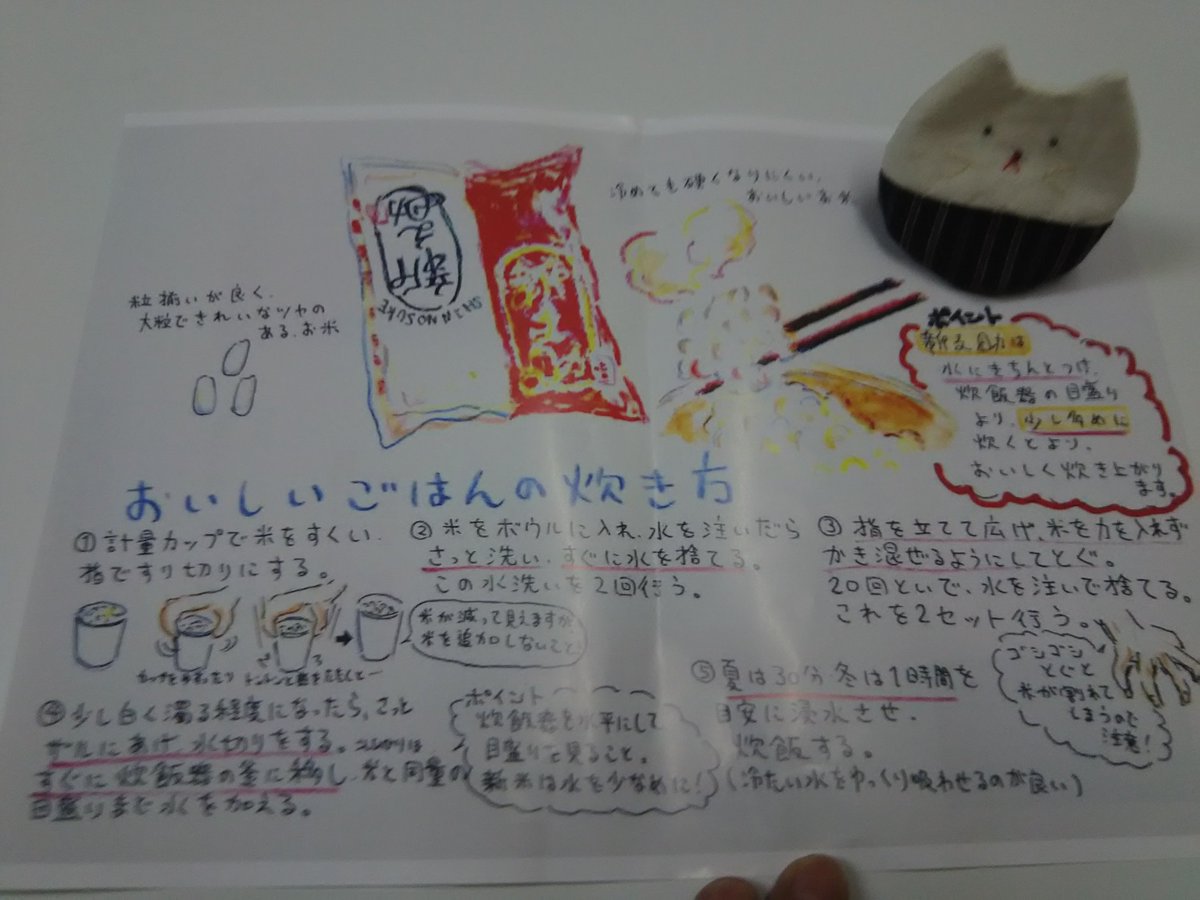 粒揃いが良く、
大粒できれいなツヤの
ある、お米
新之助
SHINNOSUKE
冷めても硬くなりにくい、
おいしいお米
ポイント
新之助は
水にきちんとつけ、
炊飯器の目盛り
より、少し多めに
炊くとより、
おいしく炊き上がり
ます。
おいしいごはんの炊き方
①計量カップで米をすくい、
指ですり切りにする。
米が減って見えますが
米を追加しないこと
②米をボウルに入れ、水を注いだら
さっと洗い、すぐに水を捨てる。
この水洗いを2回行う。
③指を立てて広げ、米を力を入れず
かき混ぜるようにしてとぐ。
20回といで、水を注いで捨てる。
これを2セット行う。
ゴシゴシ
とぐと
米が割れて
しまうので
注意!
④少し白く濁る程度になったら、さっと
ザルにあげ、水切りをする。
すぐに炊飯器の釜に移し、米と同量の
目盛りまで水を加える。
ポイント
炊飯器を水平にして
目盛りを見ること。
新米は水を少なめに!
⑤夏は30分、冬は1時間を
目安に浸水させ、
炊飯する。
(冷たい水をゆっくり吸わせるのが良い)